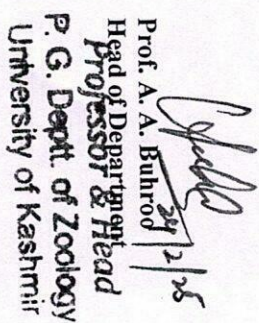 24/2/25
Prof. A. A. Buhroo
Head of Department
Professor & Head
P. G. Deptt. of Zoology
University of Kashmir